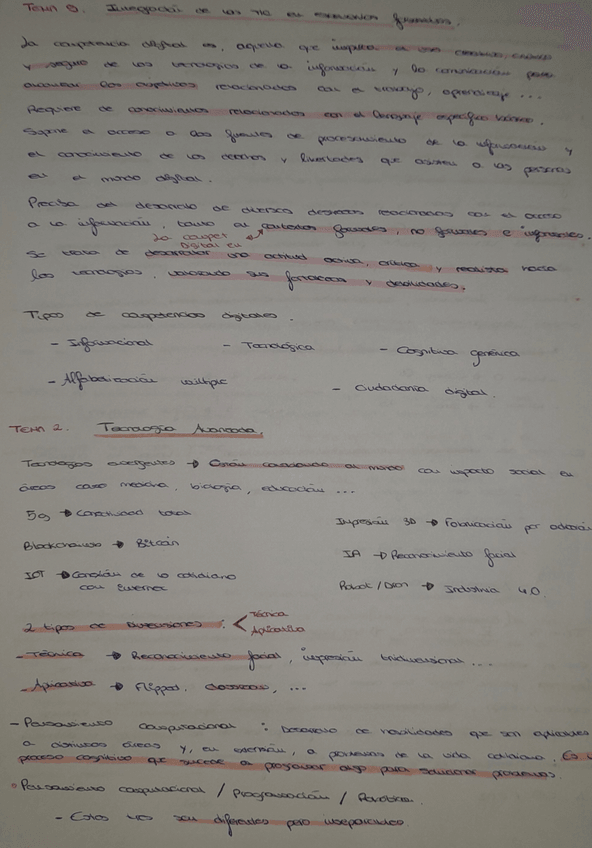 TEMA 0. Integración de las TIC en escenarios formales.
La competencia digital es, aquella que implica el uso creativo, crítico
y seguro de las tecnologías de la información y la comunicación para
alcanzar los objetivos relacionados con el trabajo, aprendizaje ...
Requiere de conocimientos relacionados con el lenguaje específico básico.
Supone el acceso a las fuentes de procesamiento de la información y
el conocimiento de los derechos y libertades que asisten a las personas
en el mundo digital.
Precisa del desarrollo de diversas destrezas relacionadas con el acceso
a la información, tanto en contextos formales, no formales e informales.
La compet. Digital en
Se trata de desarrollar una actitud activa, crítica y realista hacia
las tecnologías, valorando sus fortalezas y debilidades.
Tipos de competencias digitales.
- Informacional - Tecnológica - Cognitiva genérica
- Alfabetización múltiple - Ciudadanía digital.
TEMA 2. Tecnología Avanzada.
Tecnologías emergentes → Están cambiando el mundo con impacto social en
áreas como medicina, biología, educación ...
5g → Conectividad total Impresión 3D → Fabricación por adición
Blockchain → Bitcoin IA → Reconocimiento facial
IOT → Conexión de lo cotidiano Robot/Dron → Industria 4.0.
con
2 tipos de Dimensiones: < Técnica
Aplicativa
- Técnica → Reconocimiento facial, impresión tridimensional ...
- Aplicativa → Flipped, ...
- Pensamiento computacional: Desarrollo de habilidades que son aplicables
a distintas áreas y, en extensión, a problemas de la vida cotidiana. Es
proceso cognitivo que sucede al programar algo para solucionar problemas.
Pensamiento computacional / Programación / Robótica.
- Estos tres son diferentes pero inseparables.